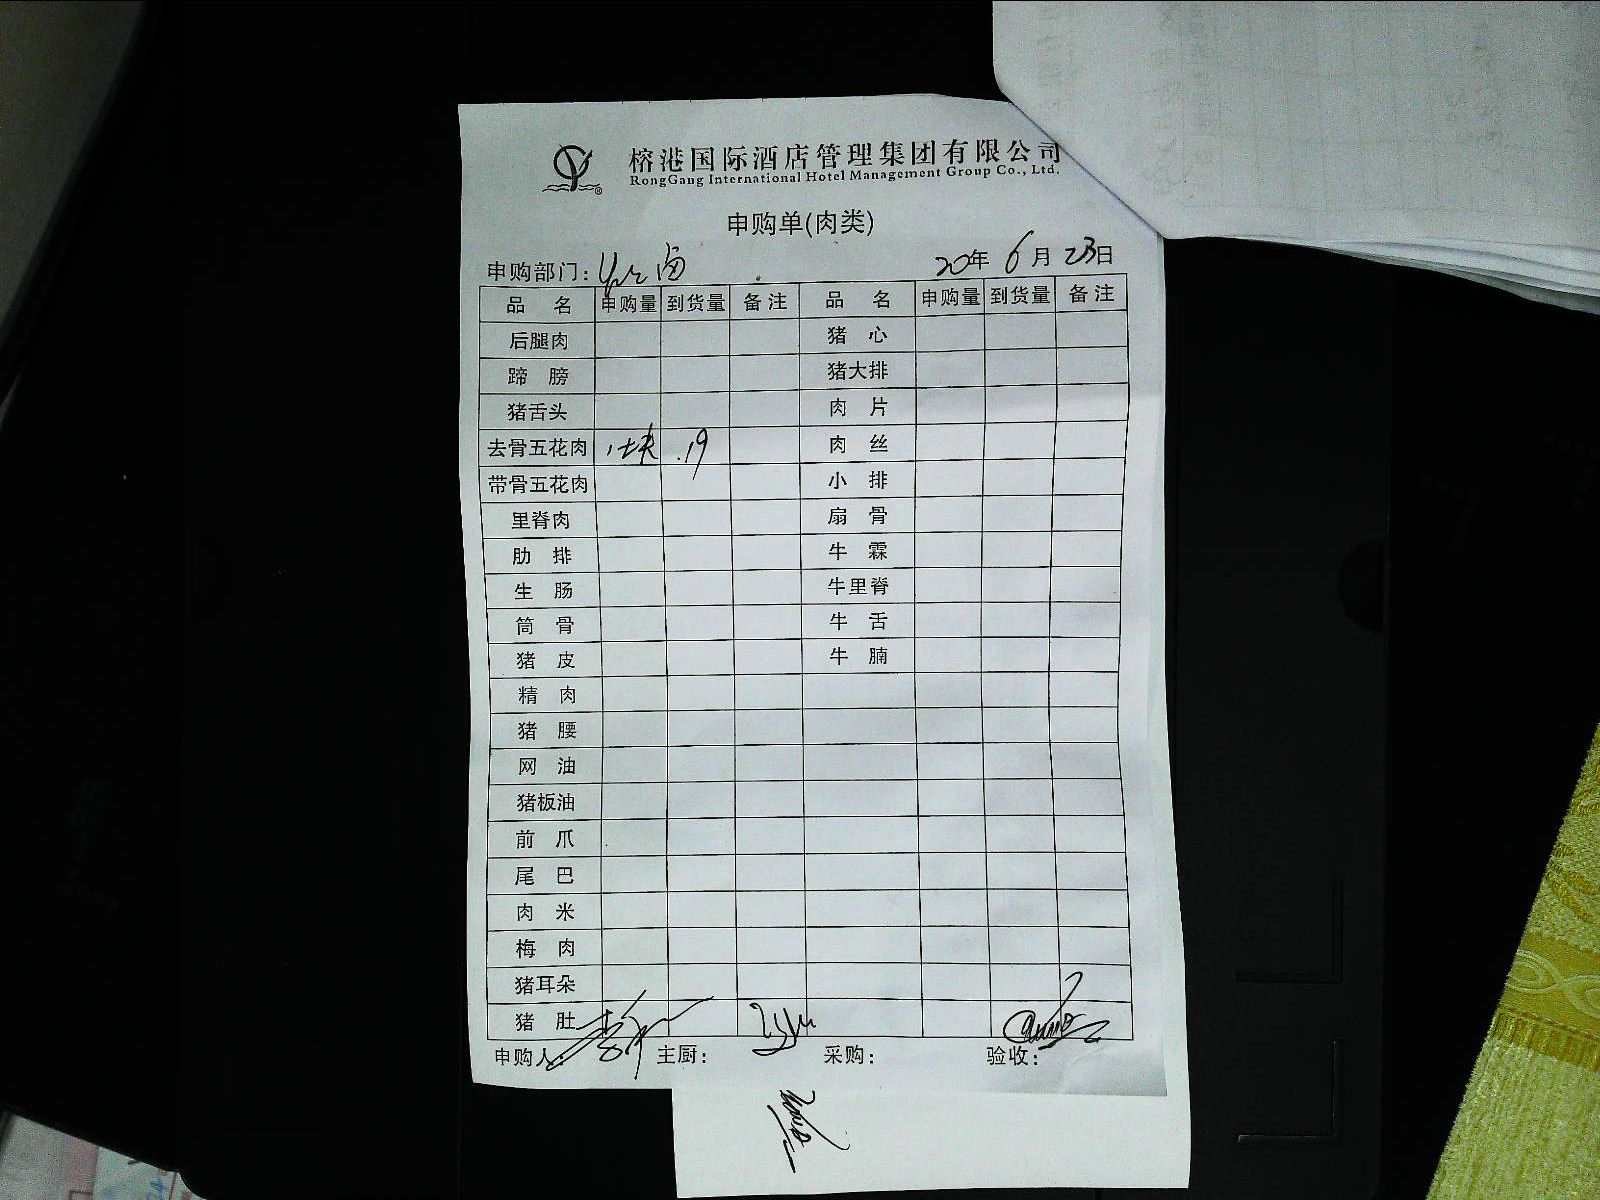 榕港国际酒店管理集团有限公司
RongGang International Hotel Management Group Co., Ltd.
申购单(肉类)
申购部门: 20年 6月 23日
品名 申购量 到货量 备注 品名 申购量 到货量 备注
后腿肉 猪心
蹄膀 猪大排
猪舌头 肉片
去骨五花肉 1块 19 肉丝
带骨五花肉 小排
里脊肉 扇骨
肋排 牛霖
生肠 牛里脊
筒骨 牛舌
猪皮 牛腩
精肉
猪腰
网油
猪板油
前爪
尾巴
肉米
梅肉
猪耳朵
猪肚
申购人: 主厨: 采购: 验收: